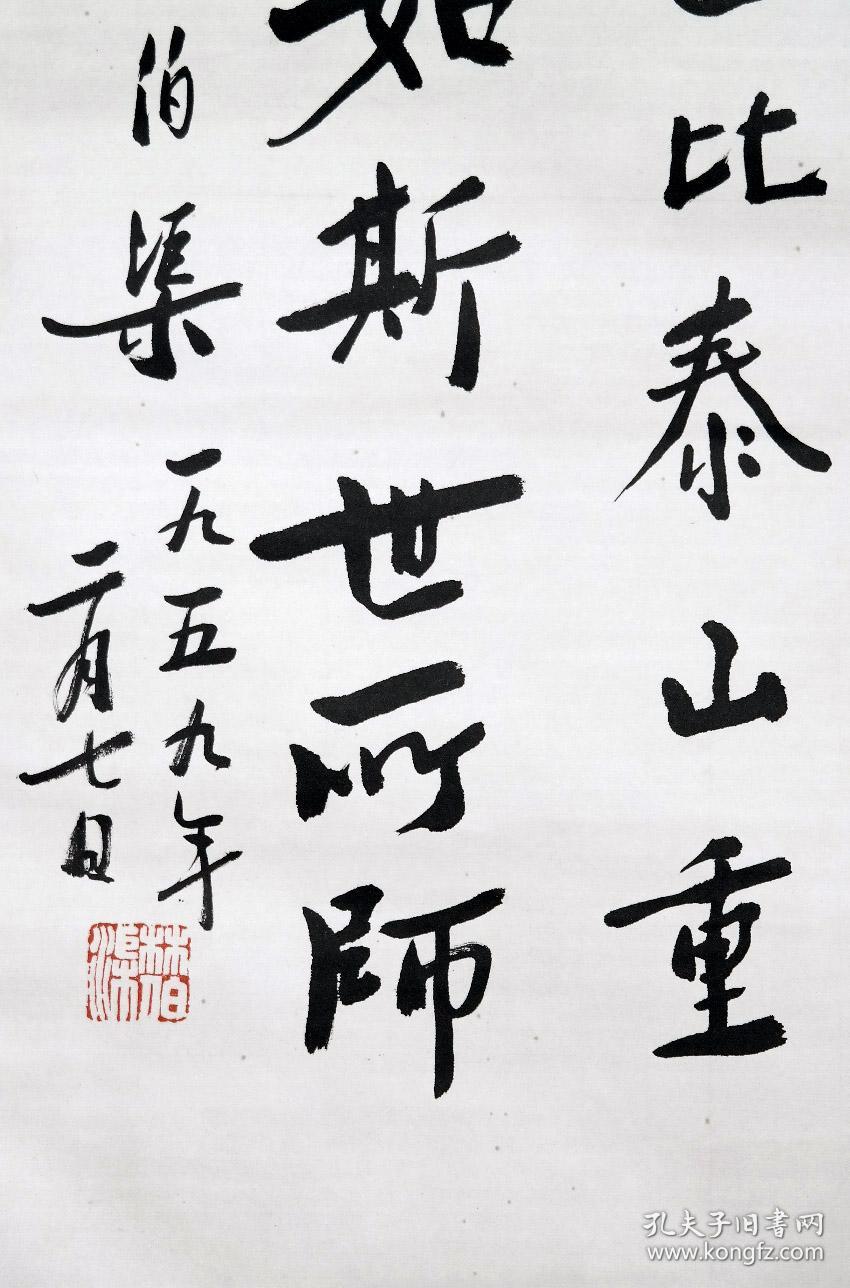 比泰山重
如斯世所師
伯渠
一九五九年
二月七日
林伯渠
孔夫子旧書网
www.kongfz.com